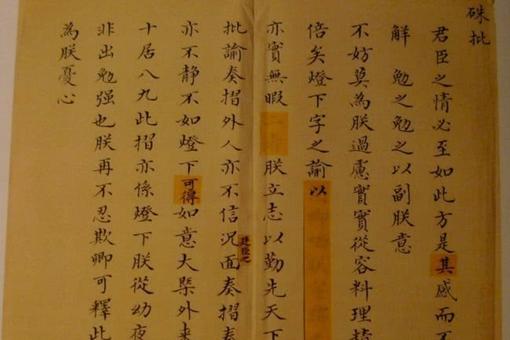 硃批
君臣之情必至如此方是其感而不
解 勉之勉之以副朕意
不妨莫為朕過慮實實從容料理
倍矣燈下字之諭以
亦實無暇 朕立志以勤先天下
批諭奏摺外人亦不信況面奏摺
亦不靜不如燈下可得如意大槩外來
十居八九此摺亦係燈下朕從幼夜
非出勉强也朕再不忍欺卿可釋此
為朕憂心